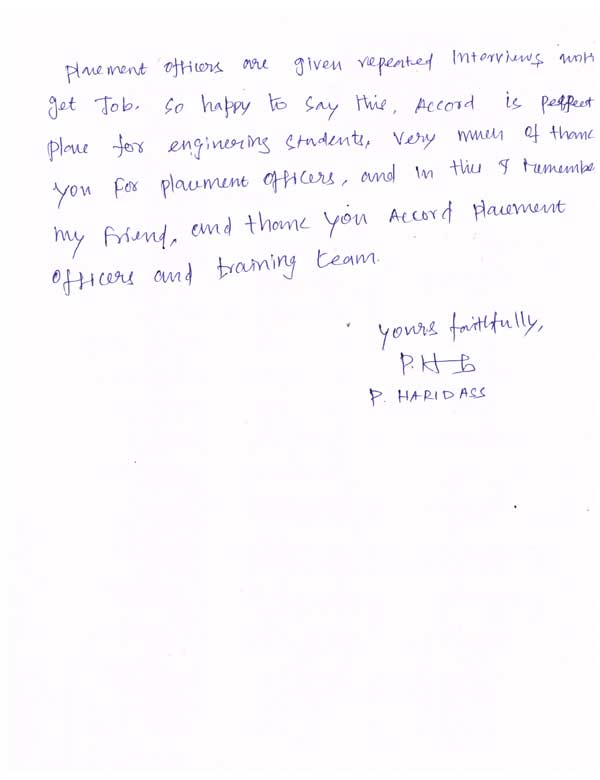 Placement officers are given repeated Interviews, untill
get Job. So happy to say this, Accord is perfect
place for engineering students, very much of thank
you for placement officers, and in this I remembe
my friend, and thank you Accord placement
officers and training team.
yours faithfully,
P. HARIDASS